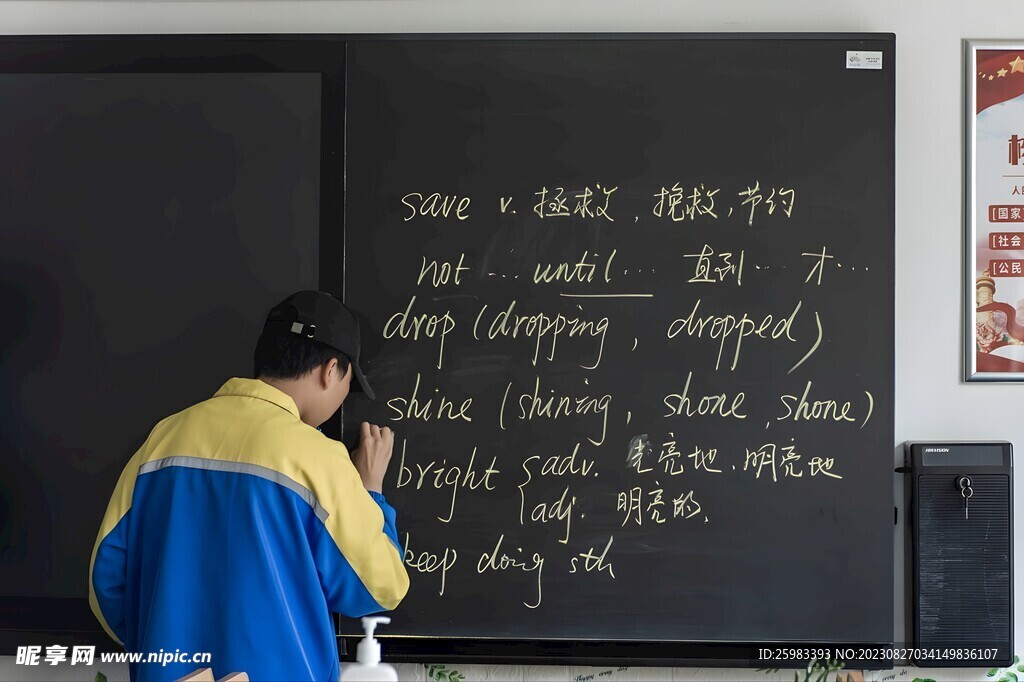 save v. 拯救, 挽救, 节约
not … until … 直到 … 才 …
drop (dropping, dropped)
shine (shining, shone, shone)
bright { adv. 光亮地、明亮地
adj. 明亮的,
keep doing sth
人
[国家
[社会
[公民
HIKVISION
昵享网 www.nipic.cn
ID:25983393 NO:20230827034149836107